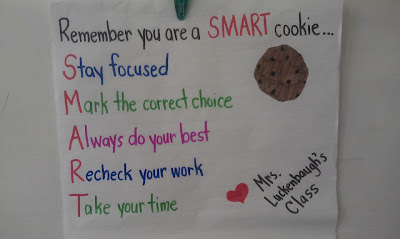 Remember you are a SMART cookie...
Stay focused
Mark the correct choice
Always do your best
Recheck your work
Take your time
Mrs.
Luckenbaugh's
Class